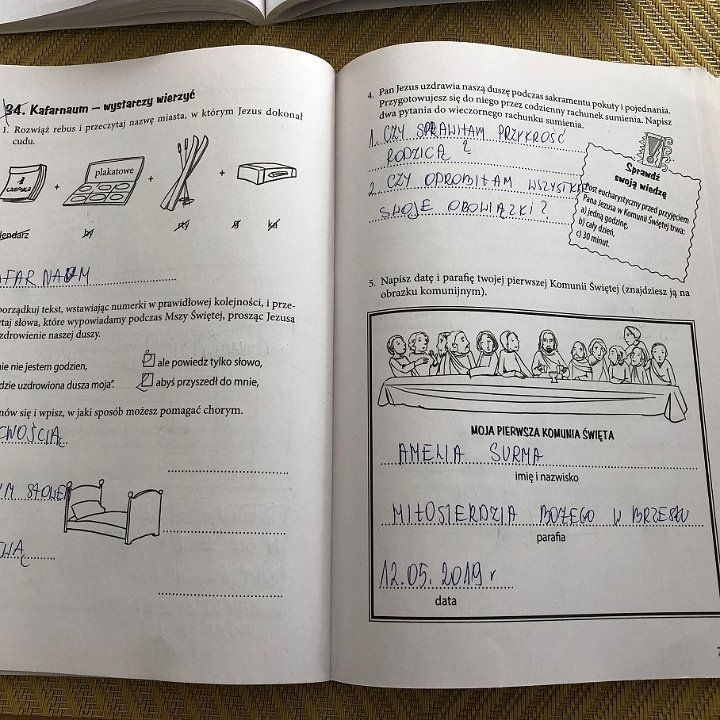 34. Kafarnaum – wystarczy wierzyć
1. Rozwiąż rebus i przeczytaj nazwę miasta, w którym Jezus dokonał
cudu.
plakatowe
+ + +
lendarz by ty g ka
AFARNAUM
porządkuj tekst, wstawiając numerki w prawidłowej kolejności, i prze-
taj słowa, które wypowiadamy podczas Mszy Świętej, prosząc Jezusa
zdrowienie naszej duszy.
nie nie jestem godzien,
ale powiedz tylko słowo,
dzie uzdrowiona dusza moja”.
2 abyś przyszedł do mnie,
nów się i wpisz, w jaki sposób możesz pomagać chorym.
CNOŚCIĄ
YM SŁOWEM
TWĄ
4. Pan Jezus uzdrawia naszą duszę podczas sakramentu pokuty i pojednania.
Przygotowujesz się do niego przez codzienny rachunek sumienia. Napisz
dwa pytania do wieczornego rachunku sumienia.
1. CZY SPRAWIŁAM PRZYKROŚĆ
RODZICĄ ?
2. CZY OPROBIŁAM WSZYSTKIE
SWOJE OBOWIĄZKI ?
Sprawdź
swoją wiedzę
Post eucharystyczny przed przyjęciem
Pana Jezusa w Komunii Świętej trwa:
a) jedną godzinę,
b) cały dzień,
c) 30 minut.
5. Napisz datę i parafię twojej pierwszej Komunii Świętej (znajdziesz ją na
obrazku komunijnym).
MOJA PIERWSZA KOMUNIA ŚWIĘTA
AMELIA SURMA
imię i nazwisko
MIŁOSIERDZIA BOŻEGO W BRZESKU
parafia
12.05.2019 r
data
7